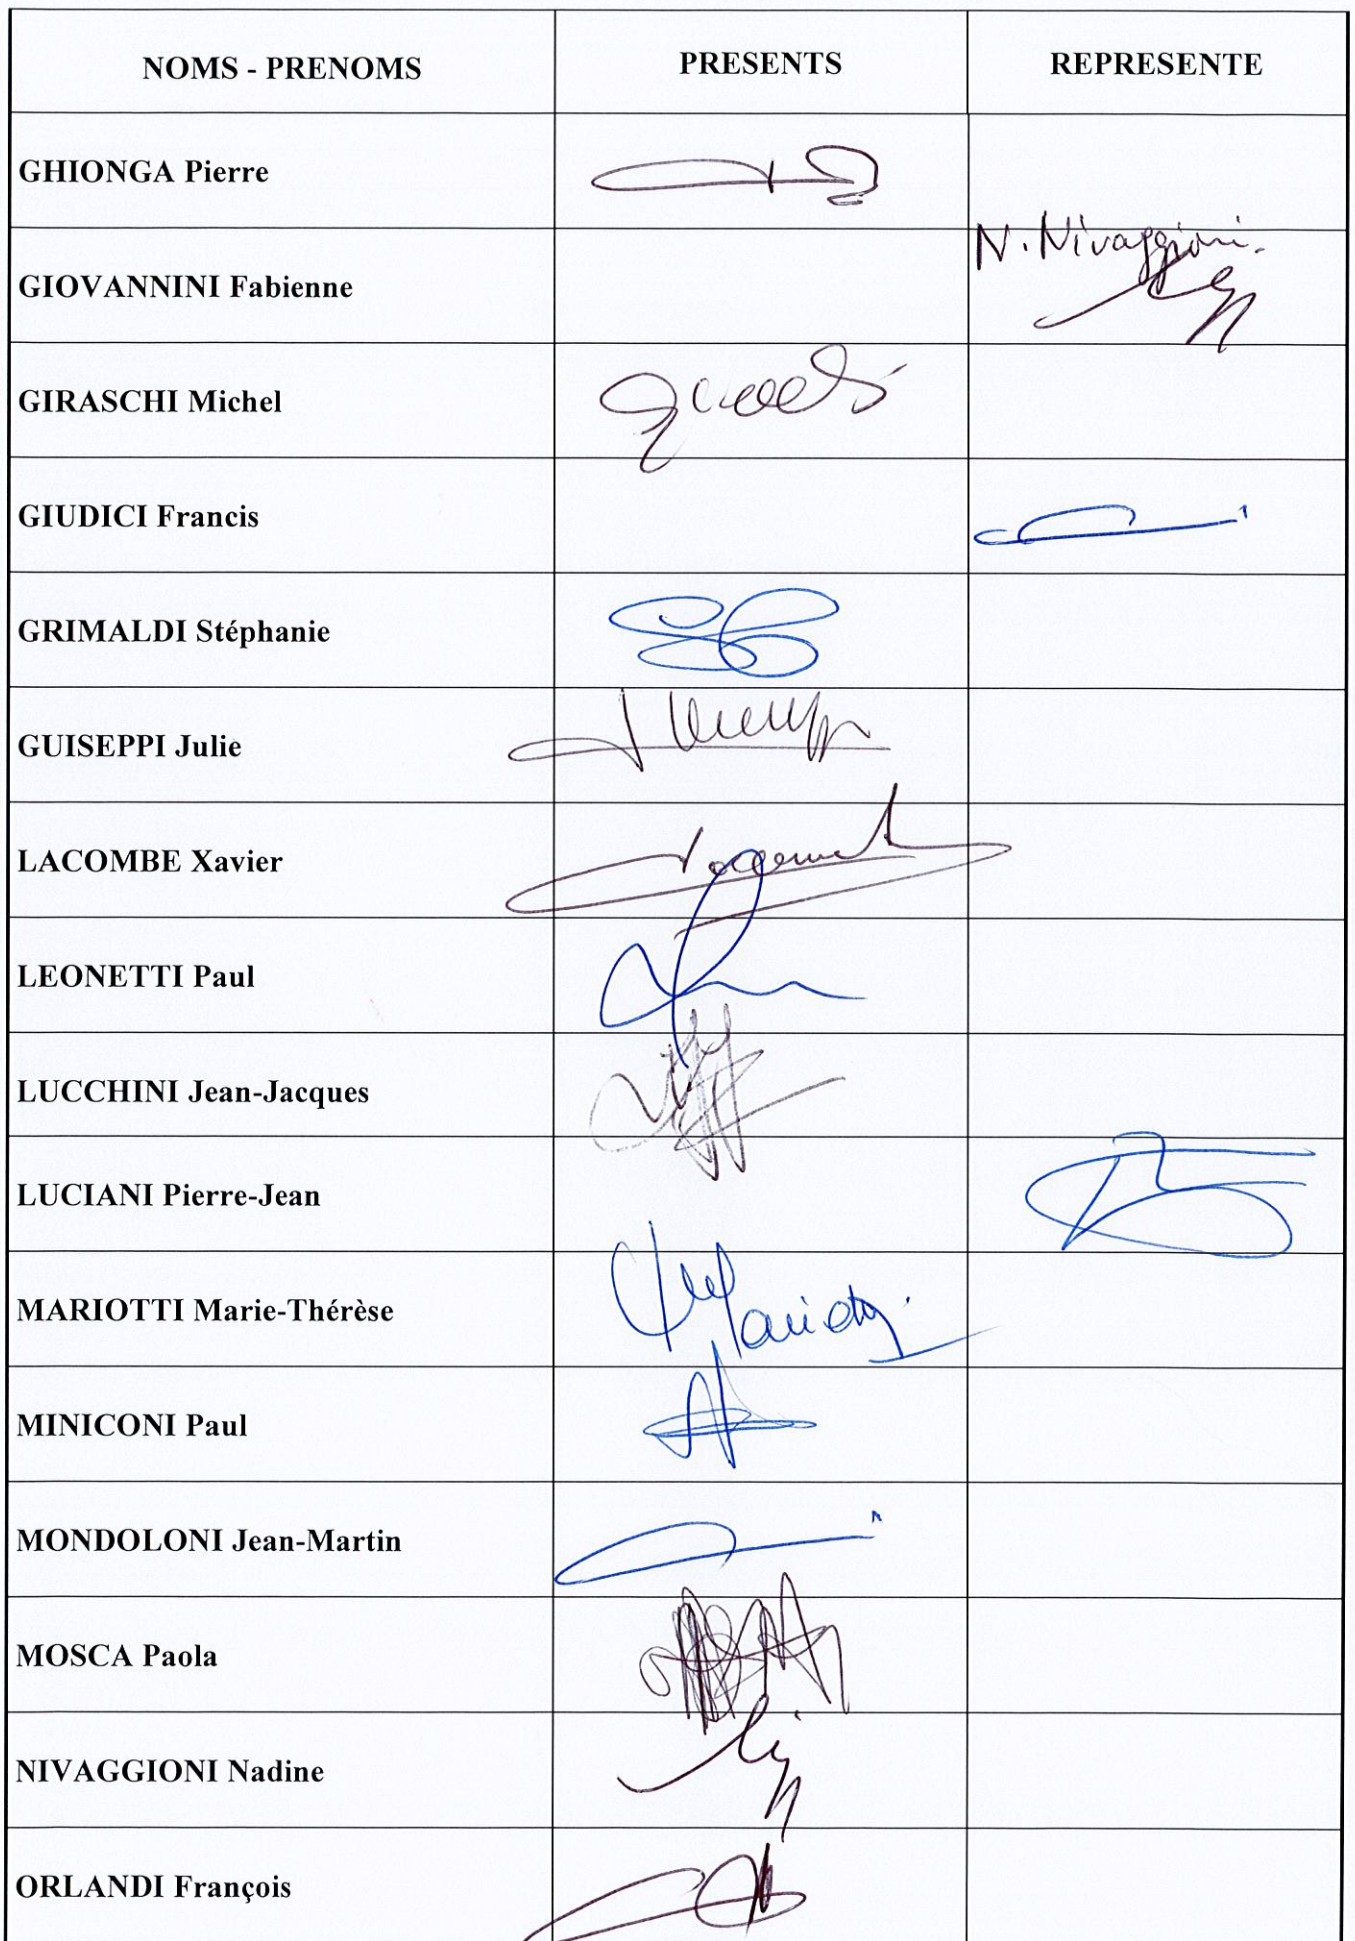 NOMS - PRENOMS PRESENTS REPRESENTE
GHIONGA Pierre
N. Nivaggioni.
GIOVANNINI Fabienne
GIRASCHI Michel
GIUDICI Francis
GRIMALDI Stéphanie
GUISEPPI Julie
LACOMBE Xavier
LEONETTI Paul
LUCCHINI Jean-Jacques
LUCIANI Pierre-Jean
MARIOTTI Marie-Thérèse
MINICONI Paul
MONDOLONI Jean-Martin
MOSCA Paola
NIVAGGIONI Nadine
ORLANDI François